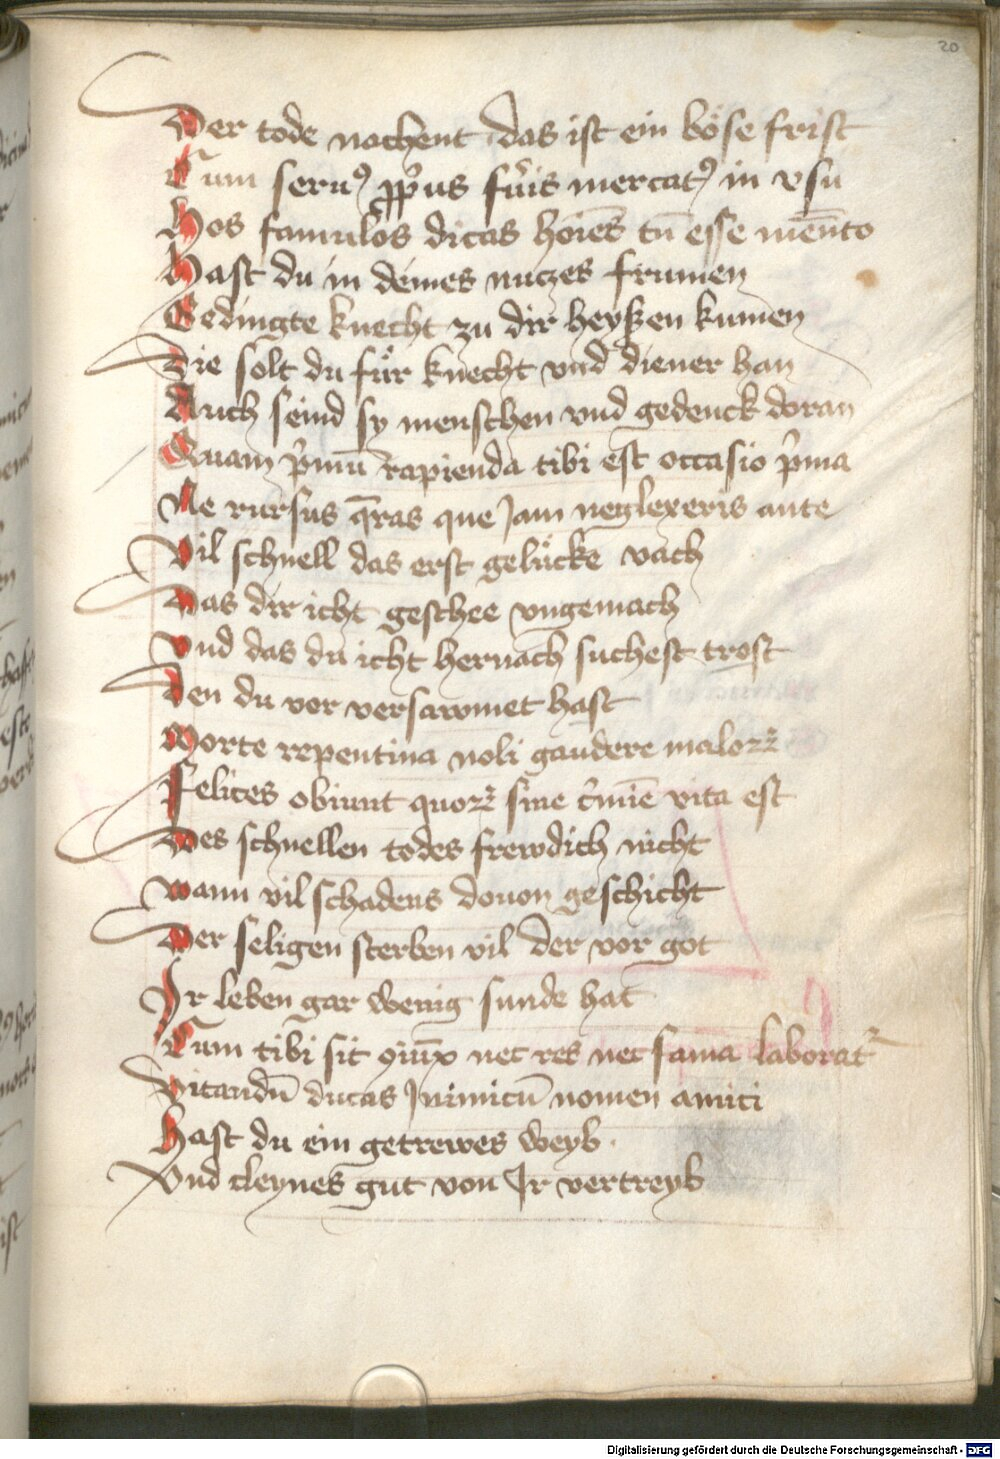 20
Der tode nachent das ist ein böse frist
Cum seruꝰ ꝓprius fu̓is mercatꝰ in vsu
Hos famulos dicas hoīes tn̄ esse mēnto
Hast du in deines nuczes frumen
Gedingte knecht zu dir heyßen kumen
Die solt du fůr knecht vnd diener han
Auch seind sy menschen vnd gedenck doran
Quam p̓mū rapienda tibi est occasio p̓ma
Ne rursus q̄ras que Jam neglexeris ante
Vil schnell das erst gelůcke vach
Das dir icht geschee vngemach
Vnd das du icht hernach suchest trost
Den du vor versawmet hast
Morte repentina noli gaudere maloꝝ
Felices obiunt quoꝝ sine c̓mīe vita est
Des schnellen todes frewdich nicht
wann vil schadens douon geschicht
Der seligen sterben vil der vor got
Ir leben gar wenig sunde hat
Cum tibi sit ꝯiūx nec res nec fama laborat̓
Vitandū ducas Jnimicū nomen amici
Hast du ein getrewes weyb ·
Vnd cleynes gut von Jr vertreyb
Digitalisierung gefördert durch die Deutsche Forschungsgemeinschaft - DFG